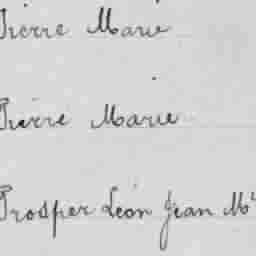 Pierre Marie
Pierre Marie
Prosper Léon Jean Mie